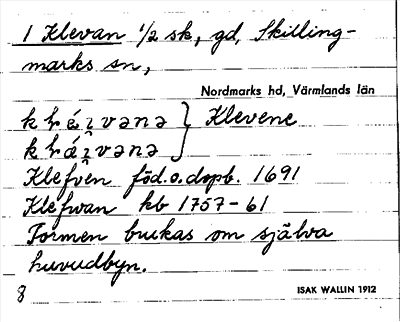 1 Klevan 1/2 sk, gd, Skilling-
marks sn,
Nordmarks hd, Värmlands län
Klevene
Klefven föd.o.dopb. 1691
Klefwan kb 1757-61
Formen brukas om själva
huvudbyn.
8 ISAK WALLIN 1912